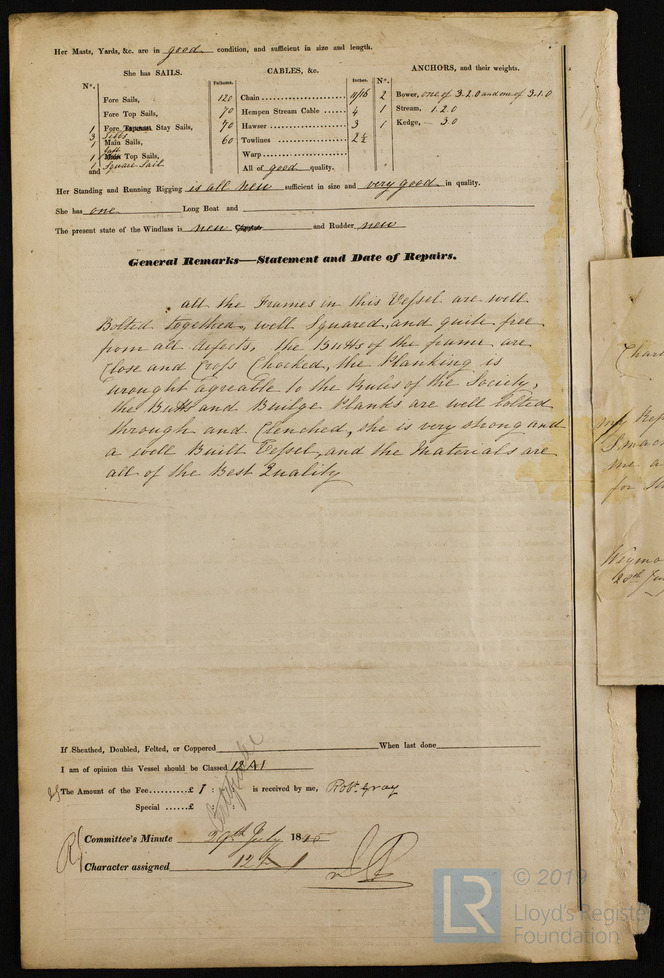 Her Masts, Yards, &c. are in good condition, and sufficient in size and length.
She has SAILS.
CABLES, &c.
ANCHORS, and their weights.
N°.
Fathoms.
Inches.
N°.
Fore Sails,
120 Chain 11/16
2 Bower, one of 3.2.0 and one of 3.1.0
Fore Top Sails,
70 Hempen Stream Cable 4
1 Stream, 1.2.0
1 Fore Stay Sails,
70 Hawser 3
1 Kedge, — 3.0
3 Jibbs
1 Main Sails,
60 Towlines 2½
Gaff
1 Main Top Sails,
Warp
1 Square Sail
and
All of good quality.
Her Standing and Running Rigging is all new sufficient in size and very good in quality.
She has one Long Boat and
The present state of the Windlass is new Capstan and Rudder new
General Remarks—Statement and Date of Repairs.
all the Frames in this Vessel are well
Bolted together, well Squared, and quite free
from all defects, the Butts of the frame are
Close and Cross Chocked, the Planking is
wrought agreable to the Rules of the Society,
the Butts and Builge Planks are well bolted
through and Clenched, she is very strong and
a well Built Vessel, and the Materials are
all of the Best Quality
If Sheathed, Doubled, Felted, or Coppered When last done
I am of opinion this Vessel should be Classed 12 A1
The Amount of the Fee £ 1 : is received by me, Robt. Gray
Special £
Committee's Minute 29th July 1845
Character assigned 12 A 1
my Rep
me a
for
Weymo
20th Jun
© 2019
LR
Lloyd's Register
Foundation